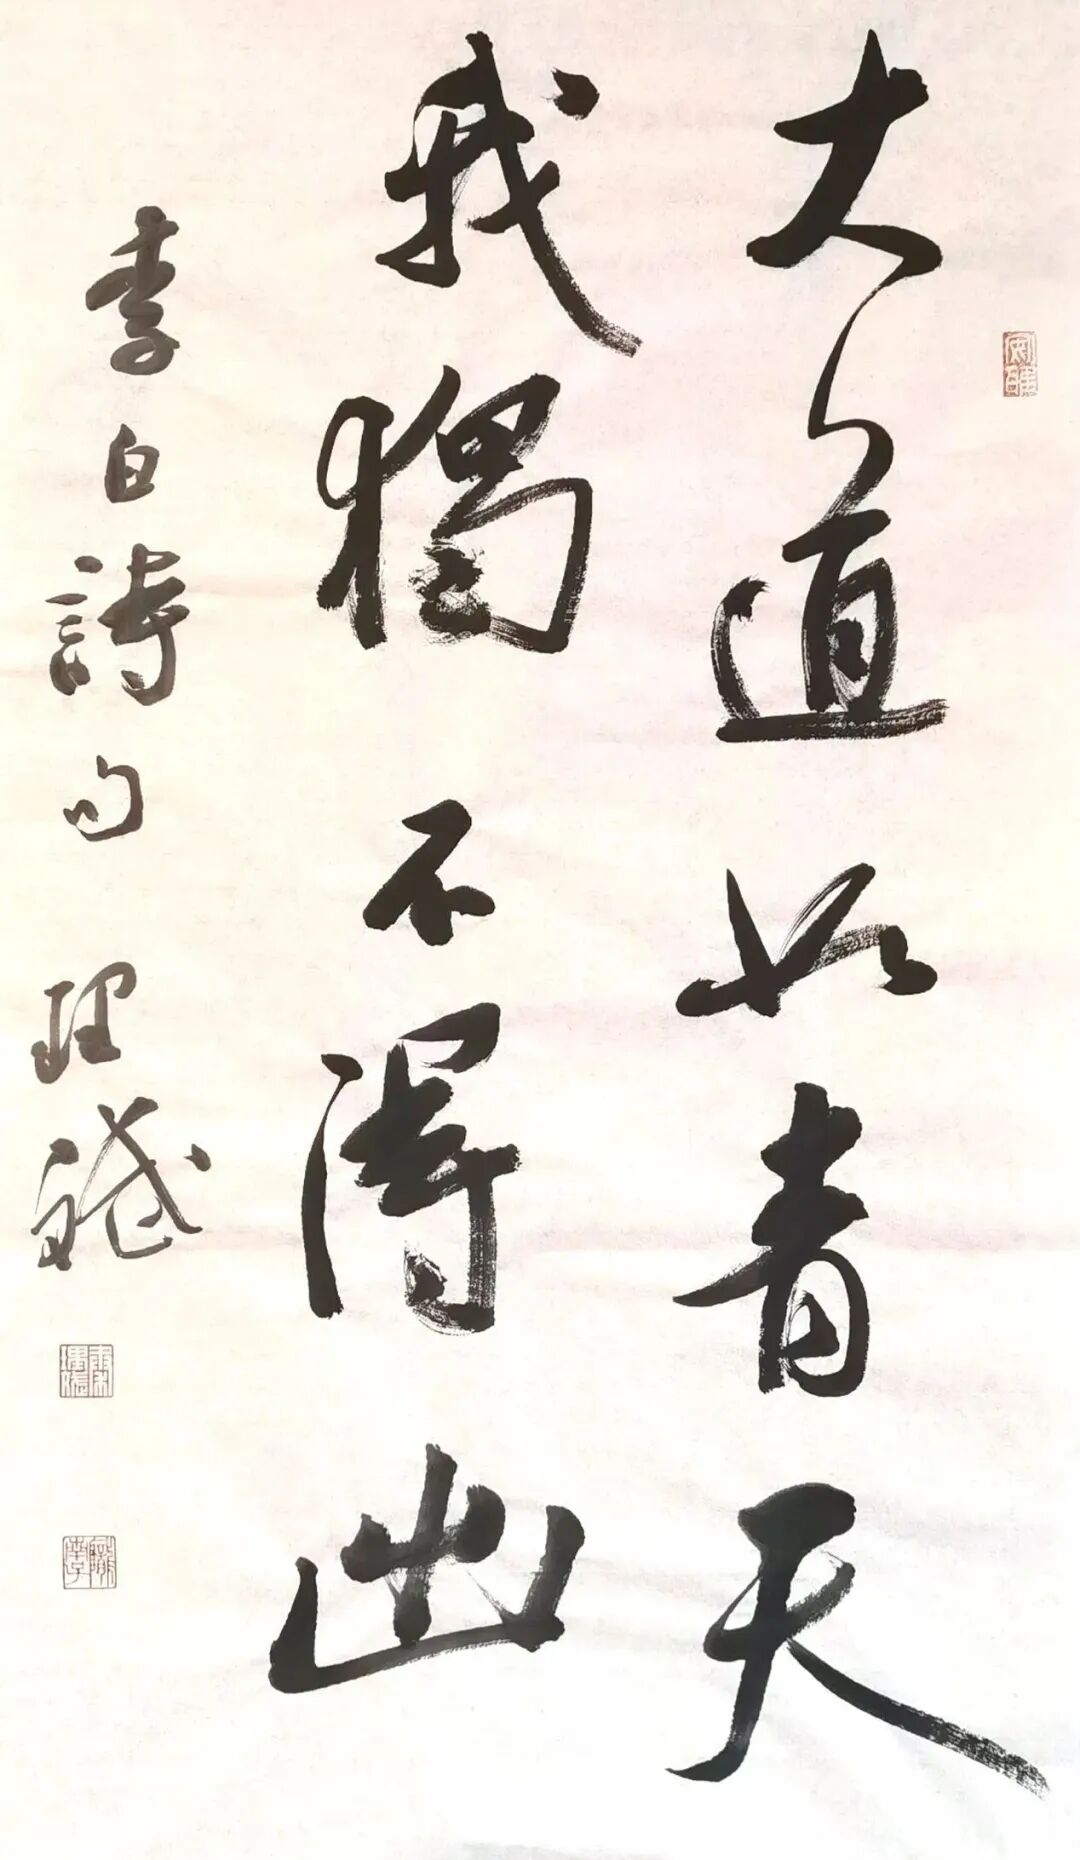 大道如青天
我獨不得出
李白詩句 理